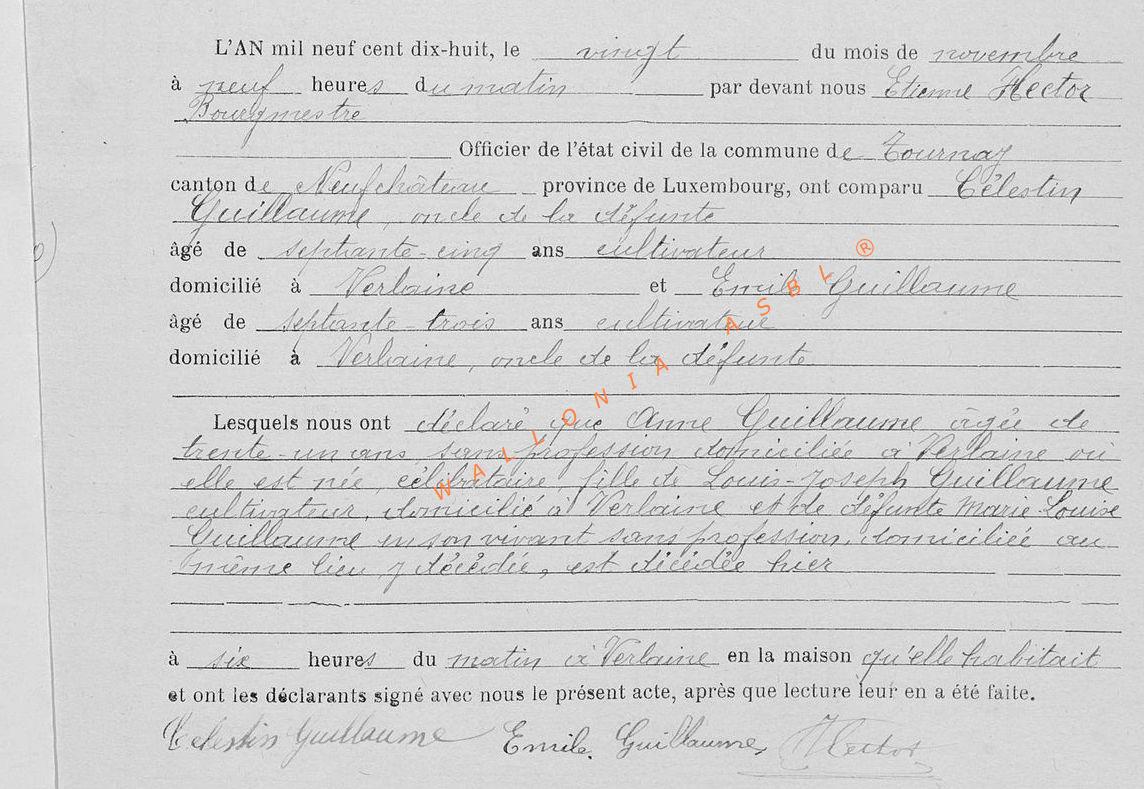 L'AN mil neuf cent dix-huit, le vingt du mois de novembre
à neuf heures du matin par devant nous Etienne Hector
Bourgmestre
Officier de l'état civil de la commune de Tournay
canton de Neufchâteau province de Luxembourg, ont comparu Célestin
Guillaume, oncle de la défunte
âgé de septante-cinq ans cultivateur
domicilié à Verlaine et Emile Guillaume
âgé de septante-trois ans cultivateur
domicilié à Verlaine, oncle de la défunte
Lesquels nous ont déclaré que Anne Guillaume âgée de
trente-un ans sans profession domiciliée à Verlaine où
elle est née, célibataire, fille de Louis-Joseph Guillaume
cultivateur, domicilié à Verlaine et de défunte Marie-Louise
Guillaume en son vivant sans profession, domiciliée au
même lieu, y décédée, est décédée hier
à six heures du matin à Verlaine en la maison qu'elle habitait
et ont les déclarants signé avec nous le présent acte, après que lecture leur en a été faite.
Celestin Guillaume Emile Guillaume Hector
WALLONIA ASBL ®